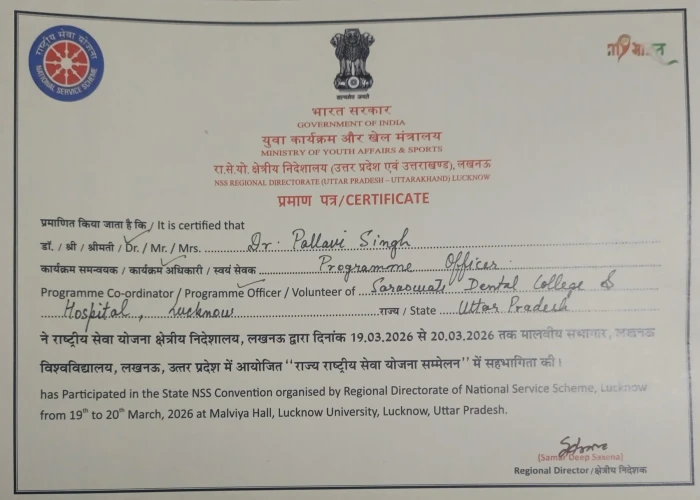 राष्ट्रीय सेवा योजना
NATIONAL SERVICE SCHEME
सत्यमेव जयते
भारत सरकार
GOVERNMENT OF INDIA
युवा कार्यक्रम और खेल मंत्रालय
MINISTRY OF YOUTH AFFAIRS & SPORTS
रा.से.यो. क्षेत्रीय निदेशालय (उत्तर प्रदेश एवं उत्तराखण्ड), लखनऊ
NSS REGIONAL DIRECTORATE (UTTAR PRADESH – UTTARAKHAND) LUCKNOW
प्रमाण पत्र/CERTIFICATE
प्रमाणित किया जाता है कि / It is certified that
डॉ. / श्री / श्रीमती / Dr. / Mr. / Mrs. Dr. Pallavi Singh
कार्यक्रम समन्वयक / कार्यक्रम अधिकारी / स्वयं सेवक Programme Officer
Programme Co-ordinator / Programme Officer / Volunteer of Saraswati Dental College &
Hospital, Lucknow राज्य / State Uttar Pradesh
ने राष्ट्रीय सेवा योजना क्षेत्रीय निदेशालय, लखनऊ द्वारा दिनांक 19.03.2026 से 20.03.2026 तक मालवीय सभागार, लखनऊ
विश्वविद्यालय, लखनऊ, उत्तर प्रदेश में आयोजित "राज्य राष्ट्रीय सेवा योजना सम्मेलन" में सहभागिता की।
has Participated in the State NSS Convention organised by Regional Directorate of National Service Scheme, Lucknow
from 19th to 20th March, 2026 at Malviya Hall, Lucknow University, Lucknow, Uttar Pradesh.
(Samar Deep Saxena)
Regional Director /क्षेत्रीय निदेशक